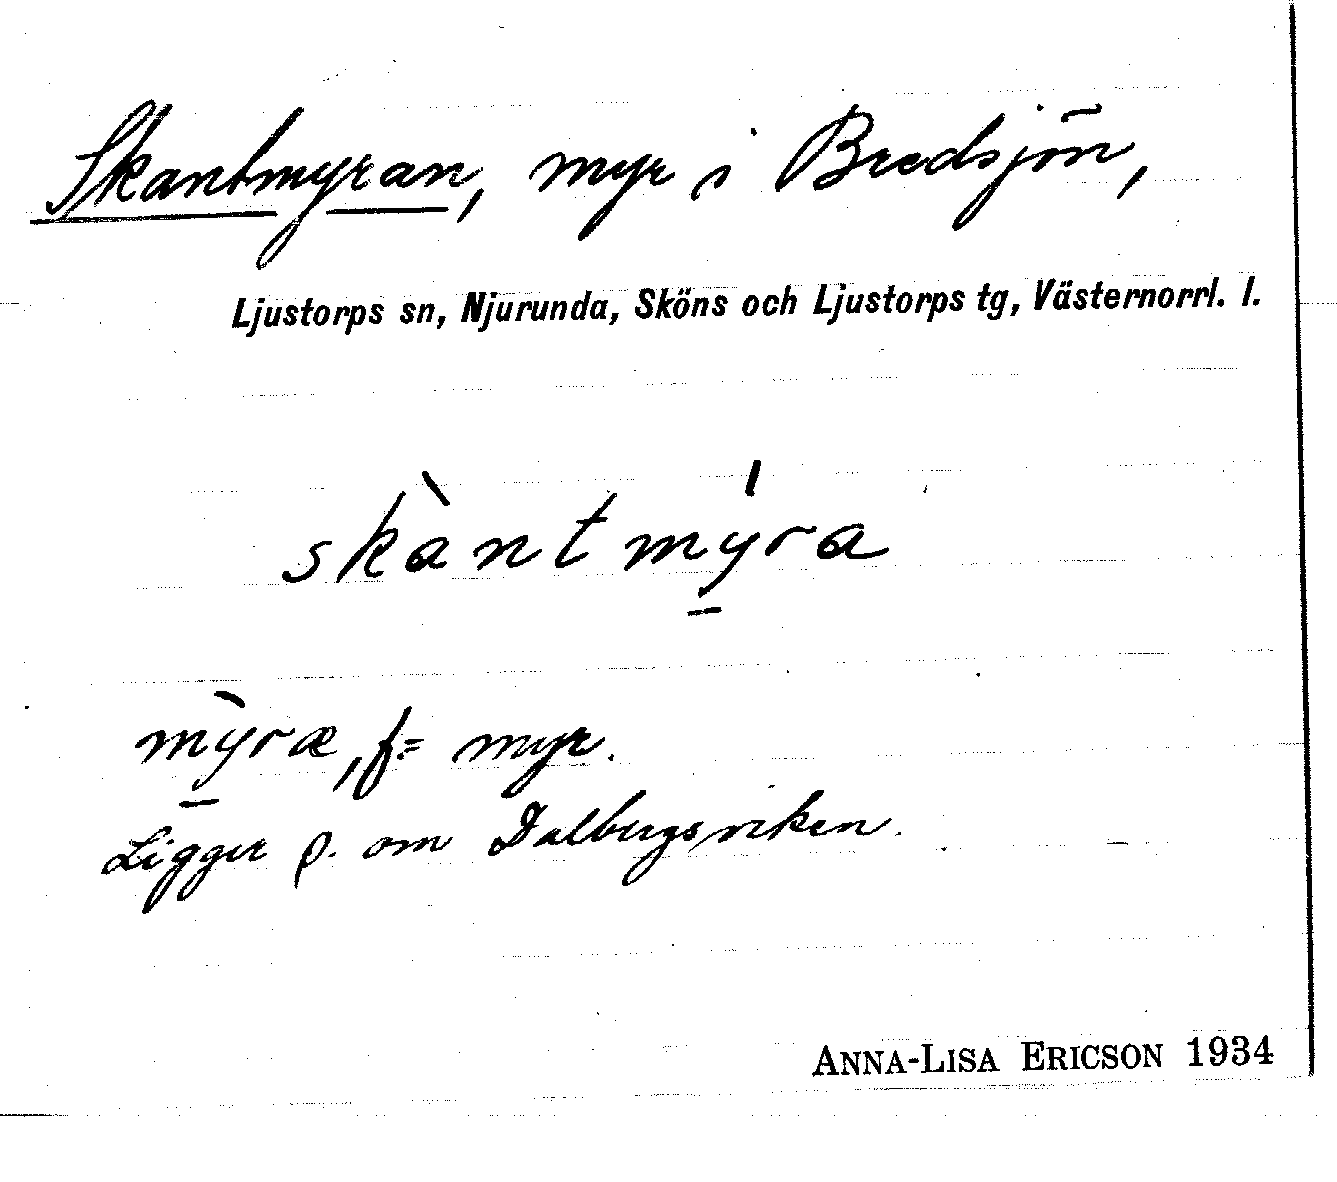 Skantmyran, myr i Bredsjön,
Ljustorps sn, Njurunda, Sköns och Ljustorps tg, Västernorrl. l.
skàntmý̲ra
mỳ̲ræ, f = myr.
Ligger ρ. om Dalbergsviken.
ANNA-LISA ERICSON 1934